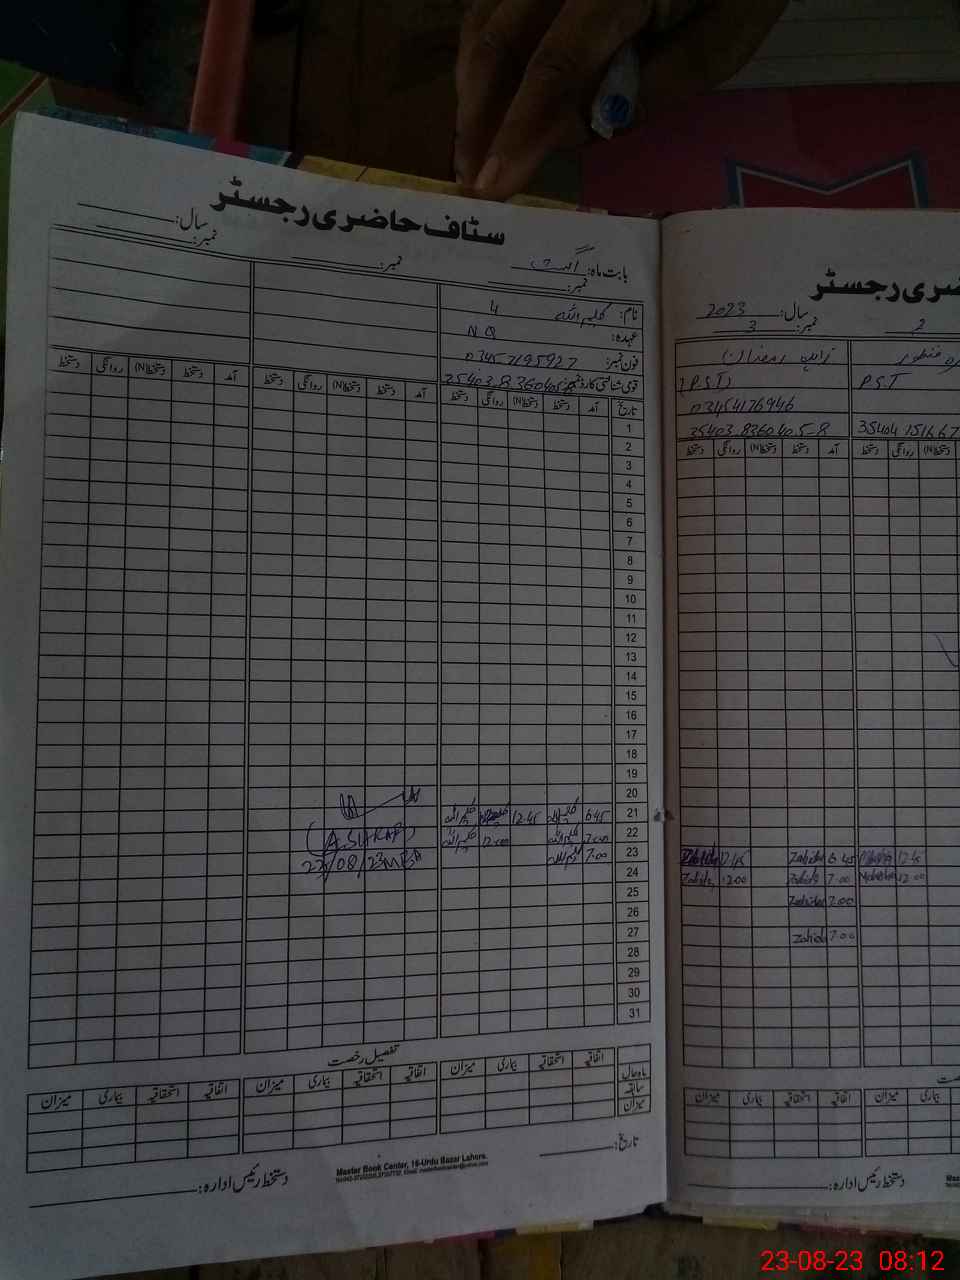 سٹاف حاضری رجسٹر
بابت ماہ: اگست
سال:
نمبر:
نمبر:
نمبر:
نام: کلیم اللہ 4
عہدہ: N Q
فون نمبر: 03457195927
قومی شناختی کارڈ نمبر:
تاریخ آمد دستخط دستخط(N) روانگی دستخط آمد دستخط دستخط(N) روانگی دستخط آمد دستخط دستخط(N) روانگی دستخط
1
2
3
4
5
6
7
8
9
10
11
12
13
14
15
16
17
18
19
20
21 6 45 کلیم اللہ 12 45 کلیم اللہ
22 7 00 کلیم اللہ 12 00 کلیم اللہ
23 7.00 کلیم اللہ
24
25
26
27
28
29
30
31
22/08/23
تفصیل رخصت
اتفاقیہ استحقاقیہ بیماری میزان اتفاقیہ استحقاقیہ بیماری میزان اتفاقیہ استحقاقیہ بیماری میزان
ماہ حال
سابقہ
میزان
تاریخ:
دستخط رئیس ادارہ:
Master Book Center, 16-Urdu Bazar Lahore.
ضری رجسٹر
سال: 2023
2 نمبر: 3
منظور
زاہد رمضان
P.S.T
(P.S.T)
03454176946
35403.8360405-8
35404 151667
دستخط(N) روانگی دستخط آمد دستخط دستخط(N) روانگی دستخط
12 45 6 45 Zahida 12 45
12.00 7.00 Zahida 12.00 Zahida
7.00 Zahida
7.00 Zahida
بیماری میزان اتفاقیہ استحقاقیہ بیماری میزان
دستخط رئیس ادارہ:
23-08-23 08:12